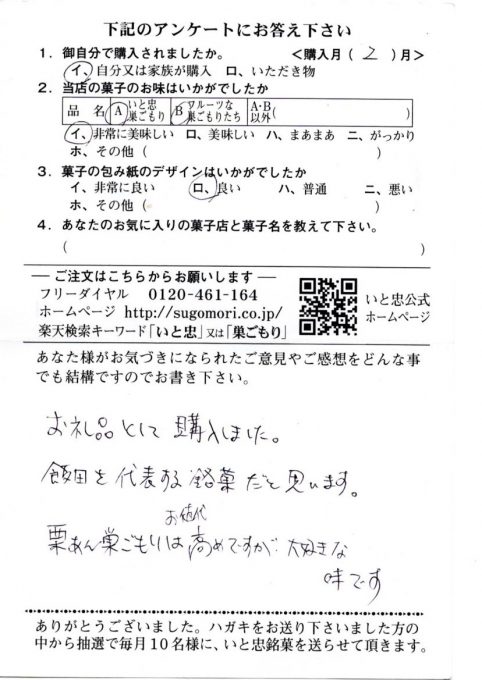 下記のアンケートにお答え下さい
1．御自分で購入されましたか。 ＜購入月（ 2 ）月＞
イ、自分又は家族が購入 ロ、いただき物
2．当店の菓子のお味はいかがでしたか
品 名 A いと忠巣ごもり B フルーツな巣ごもりたち A・B以外（ ）
イ、非常に美味しい ロ、美味しい ハ、まあまあ ニ、がっかり
ホ、その他（ ）
3．菓子の包み紙のデザインはいかがでしたか
イ、非常に良い ロ、良い ハ、普通 ニ、悪い
ホ、その他（ ）
4．あなたのお気に入りの菓子店と菓子名を教えて下さい。
（ ）
― ご注文はこちらからお願いします ―
フリーダイヤル 0120-461-164
ホームページ http://sugomori.co.jp/
楽天検索キーワード「いと忠」又は「巣ごもり」
いと忠公式
ホームページ
あなた様がお気づきになられたご意見やご感想をどんな事
でも結構ですのでお書き下さい。
お礼品として購入しました。
飯田を代表する銘菓だと思います。
お値代
栗あん巣ごもりは高めですが、大好きな
味です
ありがとうございました。ハガキをお送り下さいました方の
中から抽選で毎月10名様に、いと忠銘菓を送らせて頂きます。